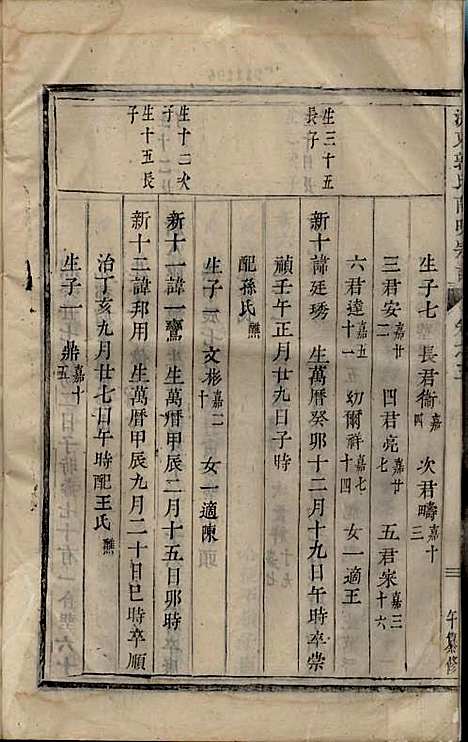 生三十五
長子
生十二次
子
生十五長
子
生子七 長君衞嘉四 次君疇嘉十三
三君安嘉廿二 四君亮嘉廿七 五君宋嘉三十六
六君達嘉五十一 幼爾祥嘉七十四 女一適王
新十諱廷琇 生萬曆癸卯十二月十九日午時卒崇
禎壬午正月廿九日子時
配孫氏醮
生子一文彬嘉二十 女一適陳
新十一諱一鸞 生萬曆甲辰二月十五日卯時
新十二諱邦用 生萬曆甲辰九月二十日巳時卒順
治丁亥九月廿七日午時配王氏醮
生子一鼎嘉十五
午纂修